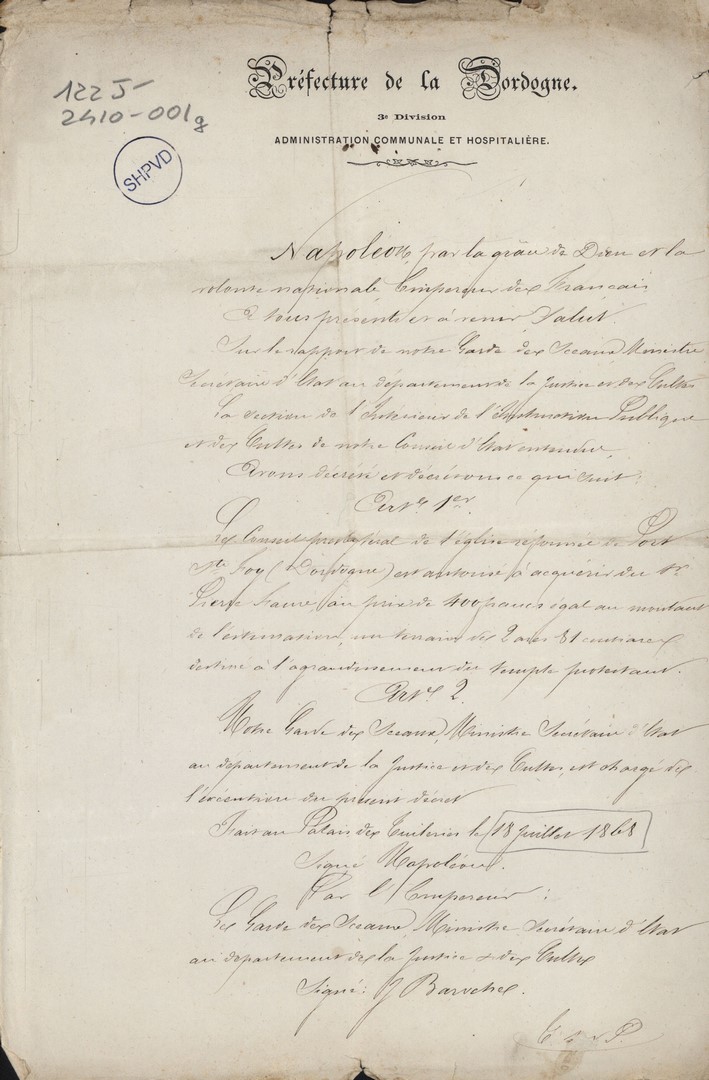 122 J
2410-001g
SHPVD
Préfecture de la Dordogne.
3e Division
ADMINISTRATION COMMUNALE ET HOSPITALIÈRE.
Napoléon, par la grâce de Dieu et la
volonté nationale, Empereur des Français
A tous présents et à venir, Salut.
Sur le rapport de notre Garde des Sceaux, Ministre
Secrétaire d'Etat au département de la Justice et des Cultes
La section de l'Intérieur de l'Instruction Publique
et des Cultes de notre Conseil d'Etat entendue,
Avons décrété et décrétons ce qui suit:
Art. 1er.
Le Conseil presbytéral de l'église réformée de Port
Ste Foy (Dordogne) est autorisé à acquérir du Sr.
Pierre Faure, au prix de 400 francs égal au montant
de l'estimation, un terrain de 2 ares 81 centiares
destiné à l'agrandissement du temple protestant.
Art. 2
Notre Garde des Sceaux, Ministre Secrétaire d'Etat
au département de la Justice et des Cultes, est chargé de
l'exécution du présent décret
Fait au Palais des Tuileries le 18 juillet 1868
Signé Napoléon.
Par l'Empereur:
Le Garde des Sceaux, Ministre Secrétaire d'Etat
au département de la Justice & des Cultes
Signé: J Baroche.